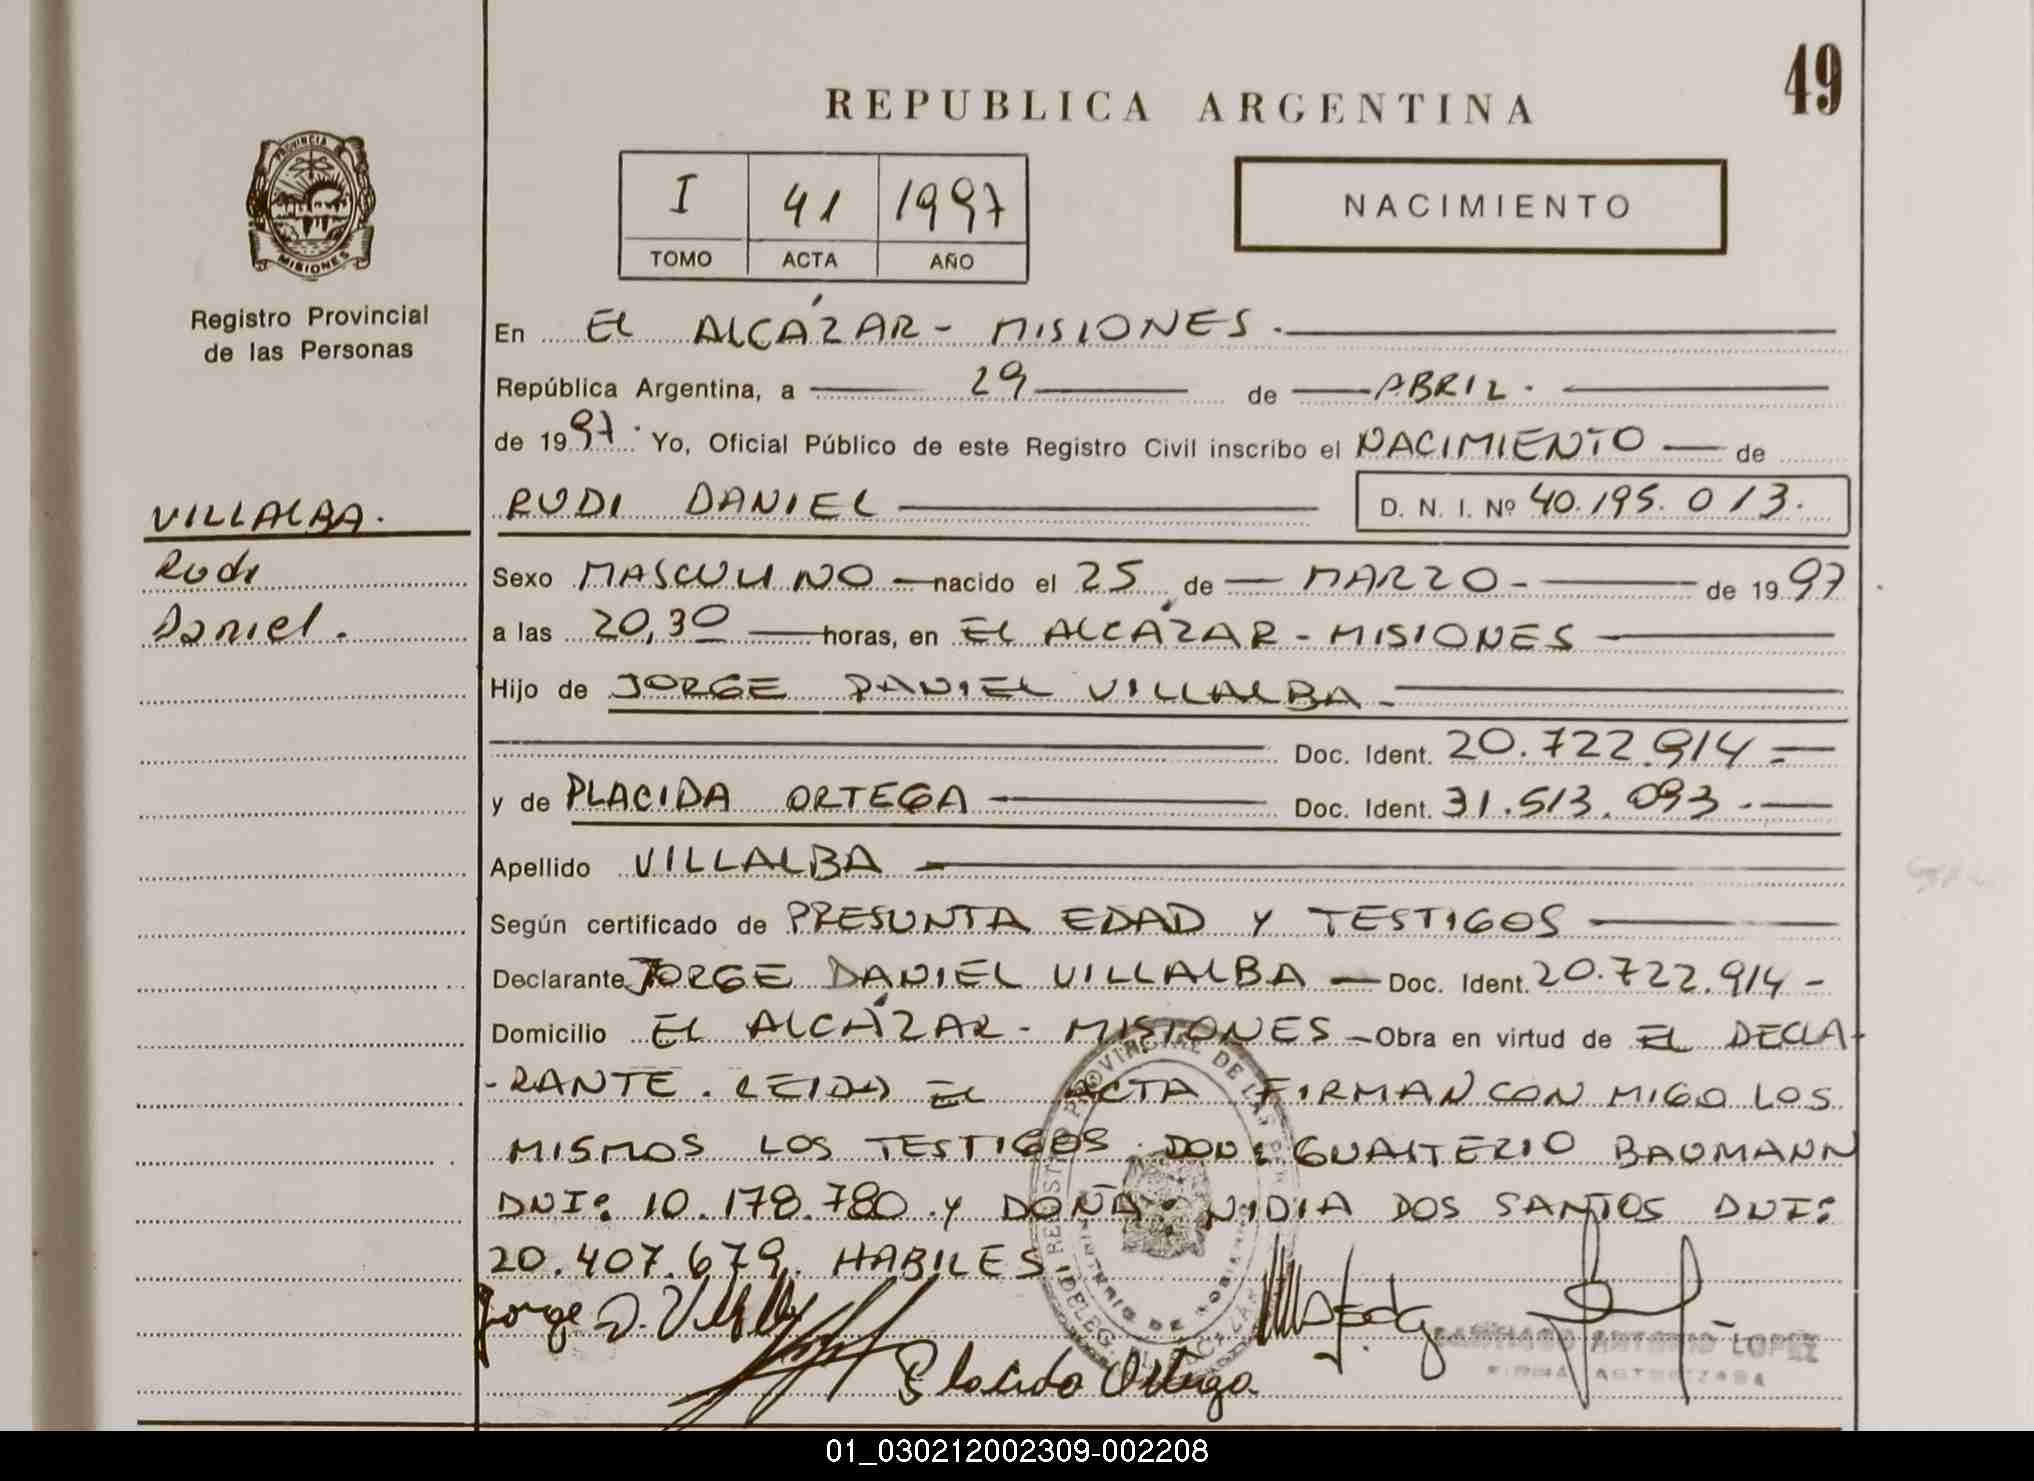 49
REPUBLICA ARGENTINA
PROVINCIA
MISIONES
Registro Provincial
de las Personas
I 41 1997
TOMO ACTA AÑO
NACIMIENTO
En EL ALCÁZAR - MISIONES.
República Argentina, a 29 de ABRIL.
de 1997. Yo, Oficial Público de este Registro Civil inscribo el NACIMIENTO de
VILLALBA.
RUDI DANIEL D. N. I. Nº 40.195.013.
Rudi
Sexo MASCULINO nacido el 25 de MARZO - de 1997
Daniel.
a las 20,30 horas, en EL ALCÁZAR - MISIONES
Hijo de JORGE DANIEL VILLALBA -
Doc. Ident. 20.722.914
y de PLACIDA ORTEGA Doc. Ident. 31.513.093.
Apellido VILLALBA
Según certificado de PRESUNTA EDAD Y TESTIGOS
Declarante JORGE DANIEL VILLALBA Doc. Ident. 20.722.914 -
Domicilio EL ALCÁZAR - MISIONES Obra en virtud de EL DECLA-
-RANTE. LEIDA EL ACTA FIRMAN CON MIGO LOS
MISMOS LOS TESTIGOS. DON: GUALTERIO BAUMANN
DNI: 10.178.780 y DOÑA NIDIA DOS SANTOS DNI:
20.407.679. HABILES
REGISTRO PROVINCIAL DE LAS
DELEG. EL ALCAZAR
MINISTERIO DE GOBIERNO
Jorge D. Villalba
Placida Ortega
SANTIAGO ANTONIO LOPEZ
FIRMA AUTORIZADA
01_030212002309-002208